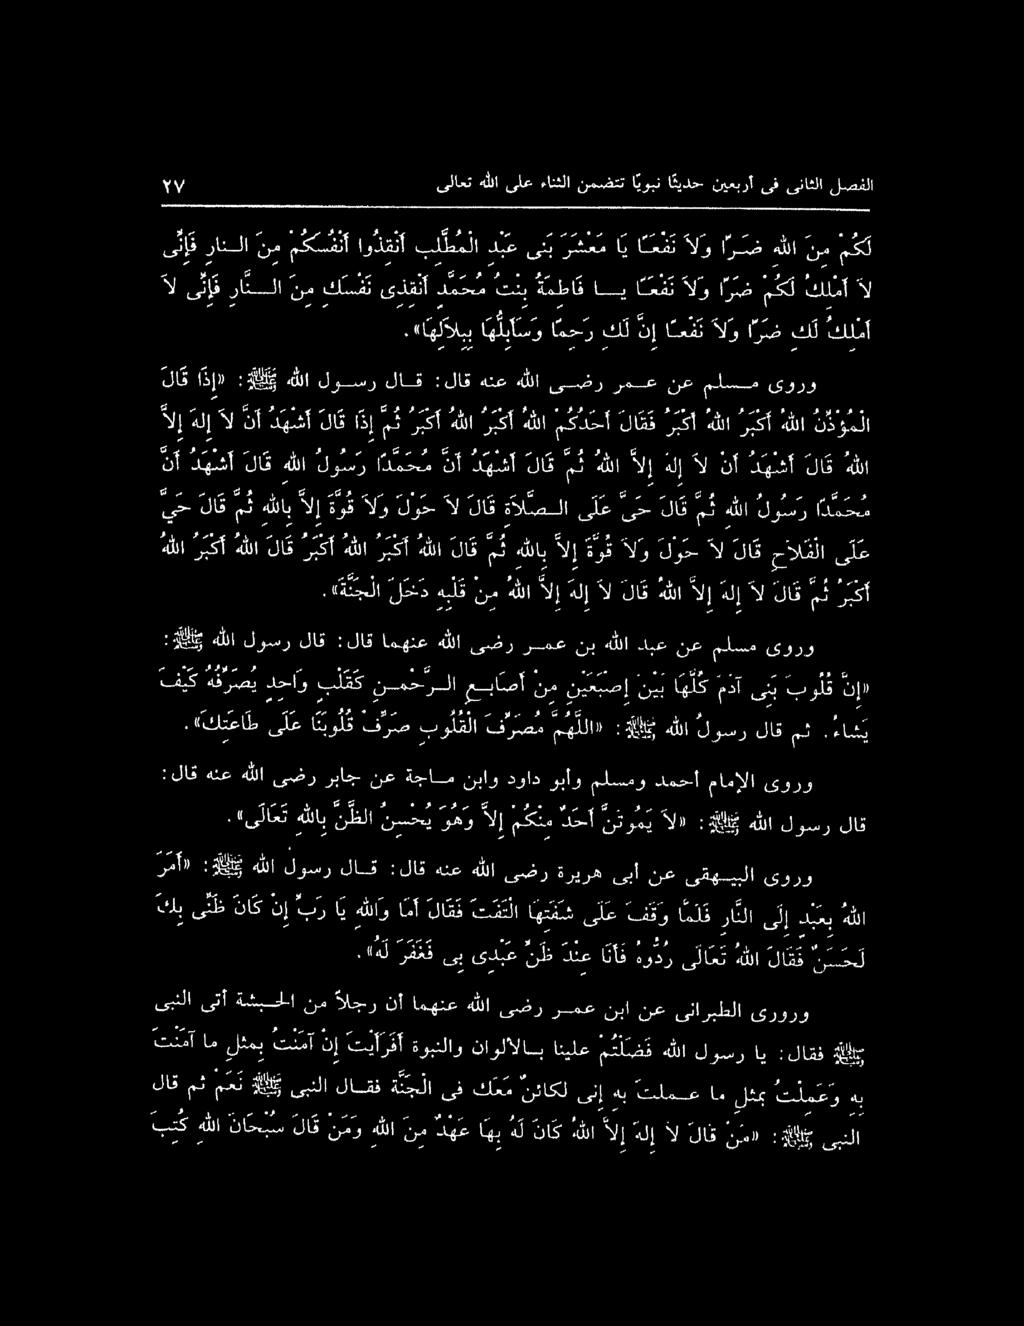 الفصل الثانى فى أربعين حديثًا نبويًا تتضمن الثناء على الله تعالى ٢٧
لَكُمْ مِنَ اللهِ ضَرًا وَلاَ نَفْعًا يَا مَعْشَرَ بَنِى عَبْدِ الْمُطَّلِبِ أَنْقِذُوا أَنْفُسَكُمْ مِنَ النارِ فَإِنِّى
لاَ أَمْلِكُ لَكُمْ ضَرًا وَلاَ نَفْعًا يا فَاطِمَةُ بِنْتُ مُحَمَّدٍ أَنْقِذِى نَفْسَكِ مِنَ النَّارِ فَإِنِّى لاَ
أَمْلِكُ لَكِ ضَرًا وَلاَ نَفْعًا إِنَّ لَكِ رَحِمًا وَسَأَبِلُّهَا بِبِلاَلِهَا».
وروى مسلم عن عمر رضى الله عنه قال: قال رسول الله ﷺ: «إِذَا قَالَ
الْمُؤَذِّنُ اللهُ أَكْبَرُ اللهُ أَكْبَرُ فَقَالَ أَحَدُكُمْ اللهُ أَكْبَرُ اللهُ أَكْبَرُ ثُمَّ إِذَا قَالَ أَشْهَدُ أَنَّ لاَ إِلهَ إِلاَّ
اللهُ قَالَ أَشْهَدُ أَنْ لاَ إِلهَ إِلاَّ اللهُ ثُمَّ قَالَ أَشْهَدُ أَنَّ مُحَمَّدًا رَسُولُ اللهِ قَالَ أَشْهَدُ أَنَّ
مُحَمَّدًا رَسُولُ اللهِ ثُمَّ قَالَ حَىَّ عَلَى الصَّلاَةِ قَالَ لاَ حَوْلَ وَلاَ قُوَّةَ إِلاَّ بِاللهِ ثُمَّ قَالَ حَيَّ
عَلَى الْفَلاَحِ قَالَ لاَ حَوْلَ وَلاَ قُوَّةَ إِلاَّ بِاللهِ ثُمَّ قَالَ اللهُ أَكْبَرُ اللهُ أَكْبَرُ قَالَ اللهُ أَكْبَرُ اللهُ
أَكْبَرُ ثُمَّ قَالَ لاَ إِلهَ إِلاَّ اللهُ قَالَ لاَ إِلهَ إِلاَّ اللهُ مِنْ قَلْبِهِ دَخَلَ الْجَنَّةَ».
وروى مسلم عن عبد الله بن عمر رضى الله عنهما قال: قال رسول الله ﷺ:
«إِنَّ قُلُوبَ بَنِى آدَمَ كُلَّهَا بَيْنَ إِصْبَعَيْنِ مِنْ أَصَابِعِ الرَّحْمنِ كَقَلْبٍ وَاحِدٍ يُصَرِّفُهُ كَيْفَ
يَشَاءُ. ثم قال رسولُ الله ﷺ: «اللَّهُمَّ مُصَرِّفَ الْقُلُوبِ صَرِّفْ قُلُوبَنَا عَلَى طَاعَتِكَ».
وروى الإمام أحمد ومسلم وأبو داود وابن ماجة عن جابر رضى الله عنه قال:
قال رسول الله ﷺ: «لاَ يَمُوتَنَّ أَحَدٌ مِنْكُمْ إِلاَّ وَهُوَ يُحْسِنُ الظَّنَّ بِاللهِ تَعَالَى».
وروى البيهقى عن أبى هريرة رضى الله عنه قال: قال رسولُ الله ﷺ: «أَمَرَ
اللهُ بِعَبْدٍ إِلَى النَّارِ فَلَمَّا وَقَفَ عَلَى شَفَتِهَا الْتَفَتَ فَقَالَ أَمَا وَاللهِ يَا رَبِّ إِنْ كَانَ ظَنِّى بِكَ
لَحَسَنٌ فَقَالَ اللهُ تَعَالَى رُدُّوهُ فَأَنَا عِنْدَ ظَنِّ عَبْدِى بِى فَغَفَرَ لَهُ».
ورورى الطبرانى عن ابن عمر رضى الله عنهما أن رجلاً من الحبشة أتى النبى
ﷺ فقال: يا رسول الله فَضَلْتُمْ علينا بالألوان والنبوة أَفَرَأَيْتَ إِنْ آمَنْتُ بِمِثْلِ ما آمَنْتَ
بِهِ وَعَمِلْتُ بمثلِ ما عملتَ بِهِ إنى لكائنٌ مَعَكَ فى الْجَنَّةِ فقال النبى ﷺ نَعَمْ ثم قال
النبى ﷺ: «مَنْ قَالَ لاَ إِلهَ إِلاَّ اللهُ كَانَ لَهُ بِهَا عَهْدٌ مِنَ اللهِ وَمَنْ قَالَ سُبْحَانَ اللهِ كُتِبَ